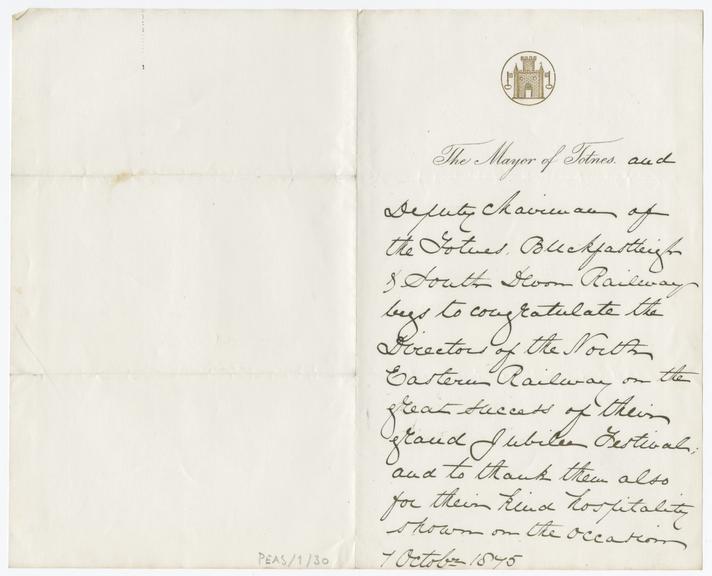 The Mayor of Totnes. and
Deputy Chairman of
the Totnes, Buckfastleigh
& South Devon Railway
begs to congratulate the
Directors of the North
Eastern Railway on the
great success of their
grand Jubilee Festival;
and to thank them also
for their kind hospitality
shown on the occasion
7 Octobr 1875
PEAS/1/30